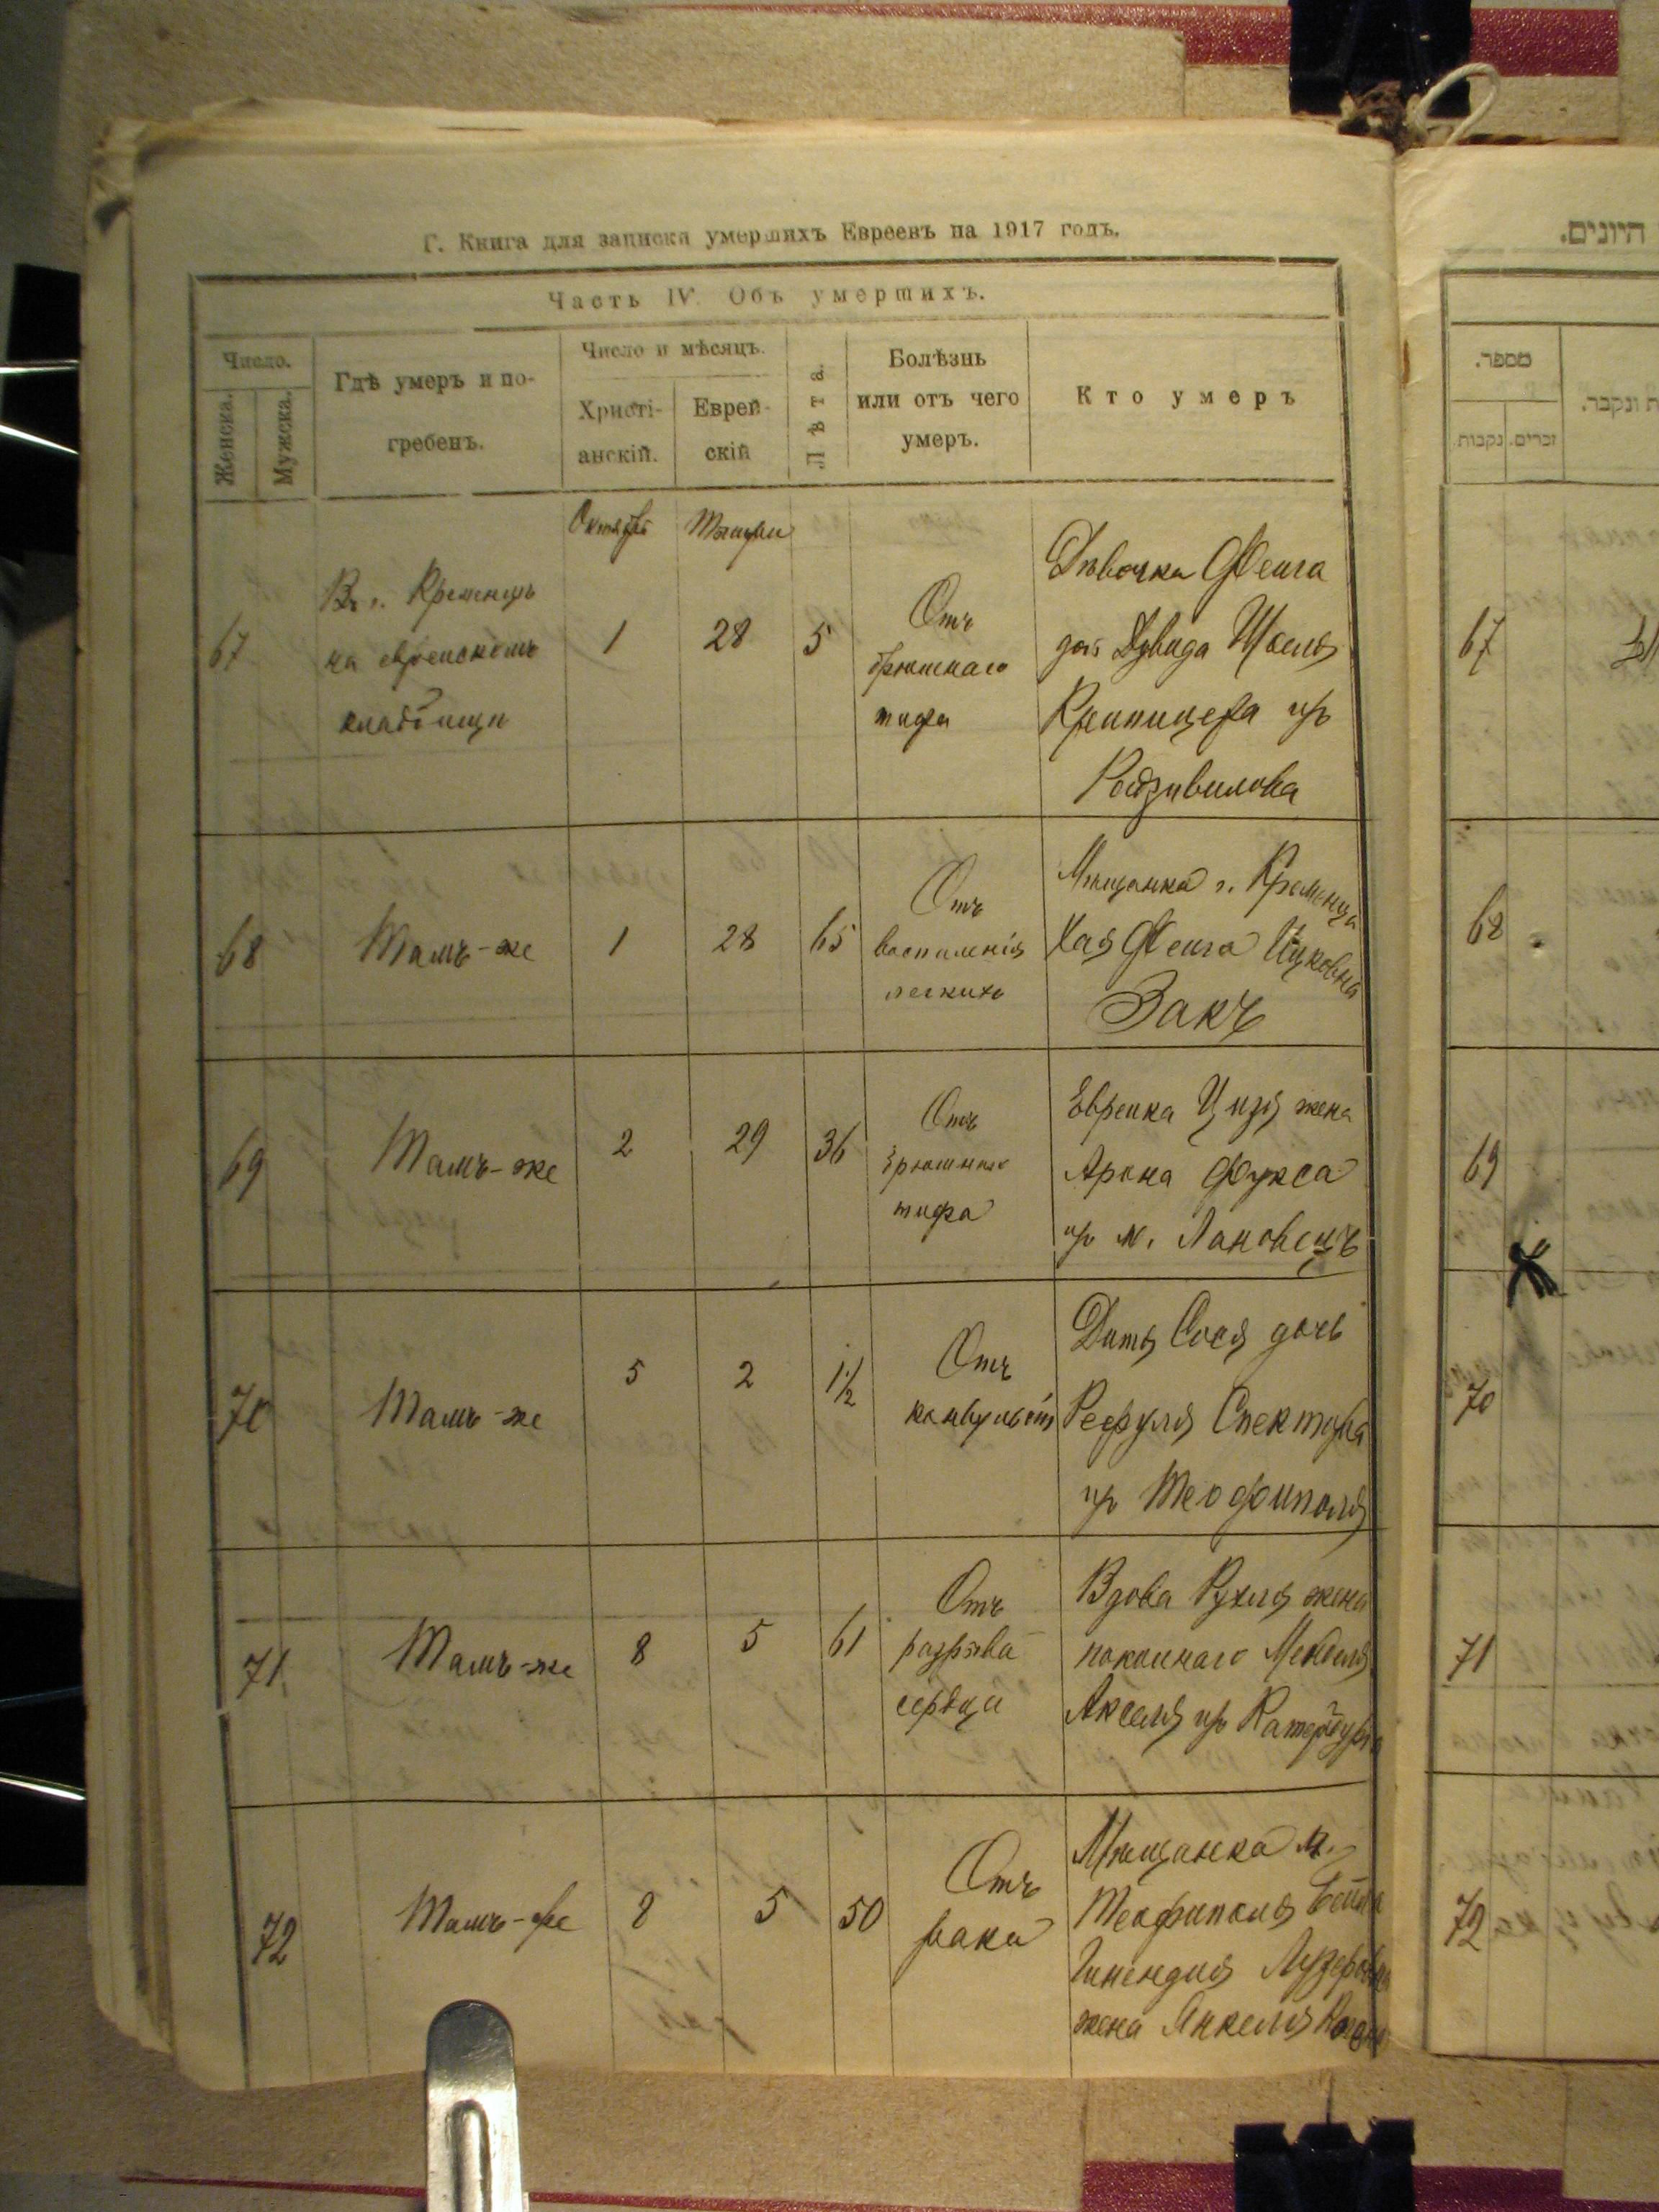 Г. Книга для записки умершихъ Евреевъ на 1917 годъ.
Часть IV. Объ умершихъ.
Число.
Женска.
Мужска.
Гдѣ умеръ и по-
гребенъ.
Число и мѣсяцъ.
Христі-
анскій.
Еврей-
скій
Лѣта.
Болѣзнь
или отъ чего
умеръ.
Кто умеръ
Октябрь Тишри
67
Въ г. Кременцѣ
на еврейскомъ
кладбищѣ
1 28 5
Отъ
брюшнаго
тифа
Дѣвочка Фейга
дочь Дувида Шоеля
Крепицера изъ
Радзивилова
68 Тамъ-же 1 28 65
Отъ
воспаленія
легкихъ
Мѣщанка г. Кременца
Хая Фейга Ицковна
Закъ
69 Тамъ-же 2 29 36
Отъ
брюшнаго
тифа
Еврейка Цизя жена
Арона Фукса
изъ м. Лановецъ
70 Тамъ-же 5 2 1½
Отъ
конвульсій
Дитя Сося дочь
Рефуля Спектора
изъ Теофиполя
71 Тамъ-же 8 5 61
Отъ
разрыва
сердца
Вдова Рухля жена
покойнаго Менделя
Акселя изъ Катербурга
72 Тамъ-же 8 5 50
Отъ
рака
Мѣщанка м.
Теофиполя Бейла
Гинендля Лузеровна
жена Янкеля
היונים.
מספר.
נקבות
זכרים.
ונקבר.
67
68
69
70
71
72